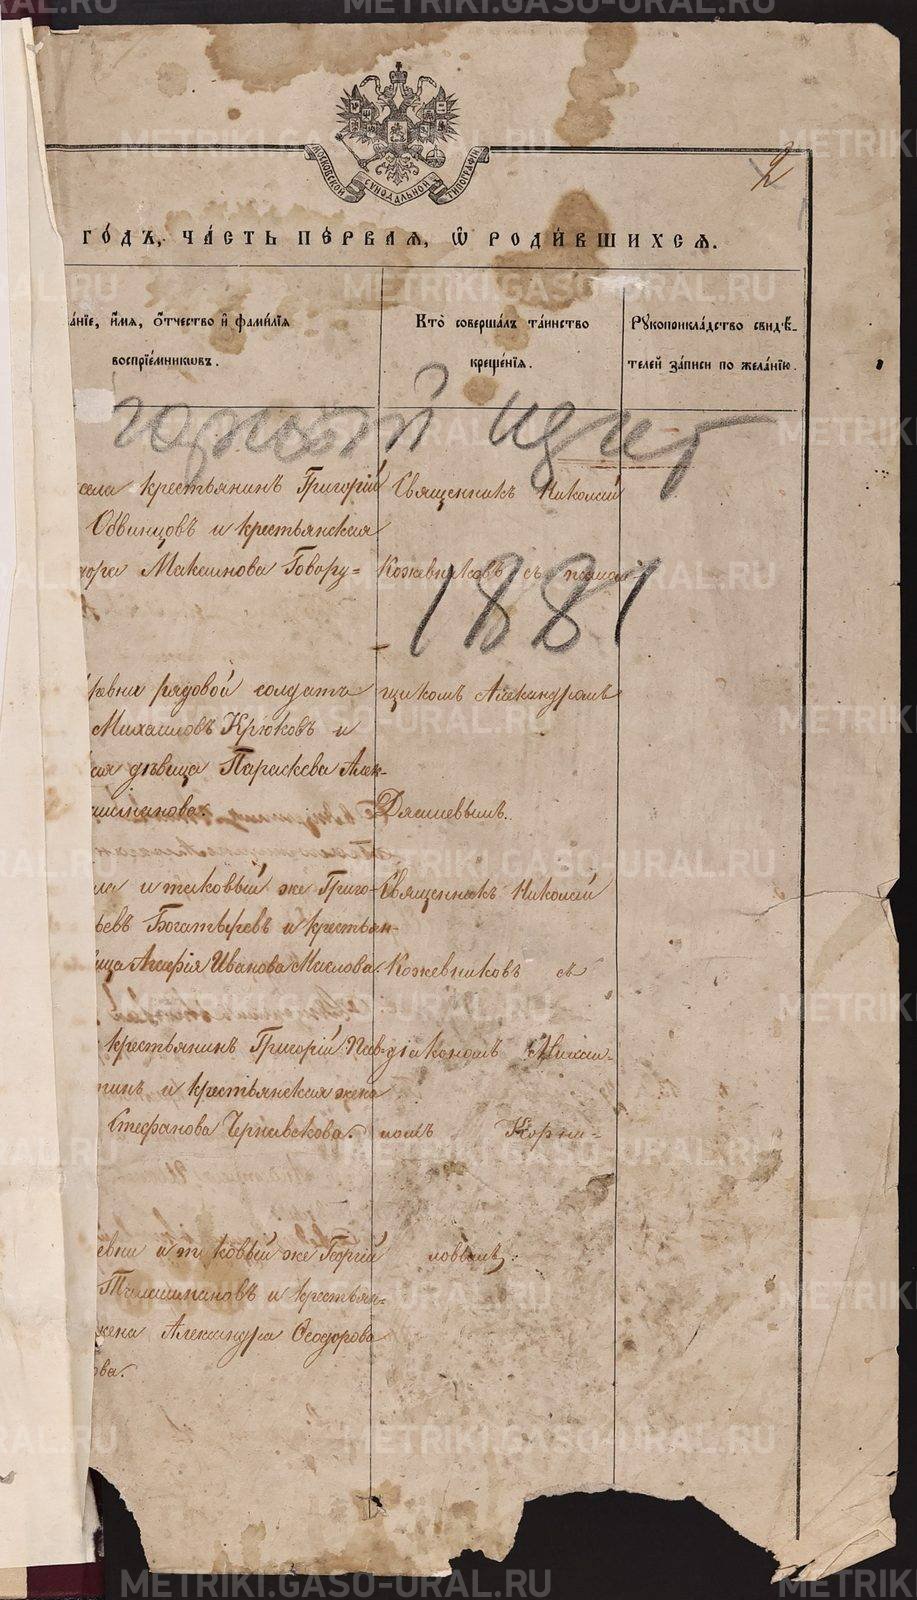 МОСКОВСКОЙ СУНОДАЛЬНОЙ ТИПОГРАФІИ
2
ГО́ДЪ, ЧА́СТЬ ПЕ́РВАЯ, Ѿ РОДИ́ВШИХСЯ.
а́нїе, и҆́мя, ѻ҆́тчество и҆ фами́лїя
воспрїе́мникѡвъ.
Кто̀ соверша́лъ та́инство
креще́нїя.
Рꙋкоприкла́дство свидѣ́-
телей за́писи по жела́нїю.
идет
1881
села крестьянинъ Григорій
Обвинцовъ и крестьянская
дора Максимова Говору=
Священникъ Николай
Кожевниковъ съ
ревни рядовой солдатъ
Михаиловъ Крюковъ и
ая дѣвица Параскева Алек-
щикомъ Александромъ
ла и таковый же Григо-
ьевъ Богатыревъ и крестьян-
ица Агафія Иванова Маслова.
Священникъ Николай
Кожевниковъ съ
крестьянинъ Григорій Пав-
и крестьянская жена
Стефанова Чернавскова.
діакономъ Михаи-
ломъ Корни-
евни и т ковый же Георгій
Талашмановъ и крестьян=
жена Александра Ѳеодорова
ова.
ловымъ.
METRIKI.GASO-URAL.RU